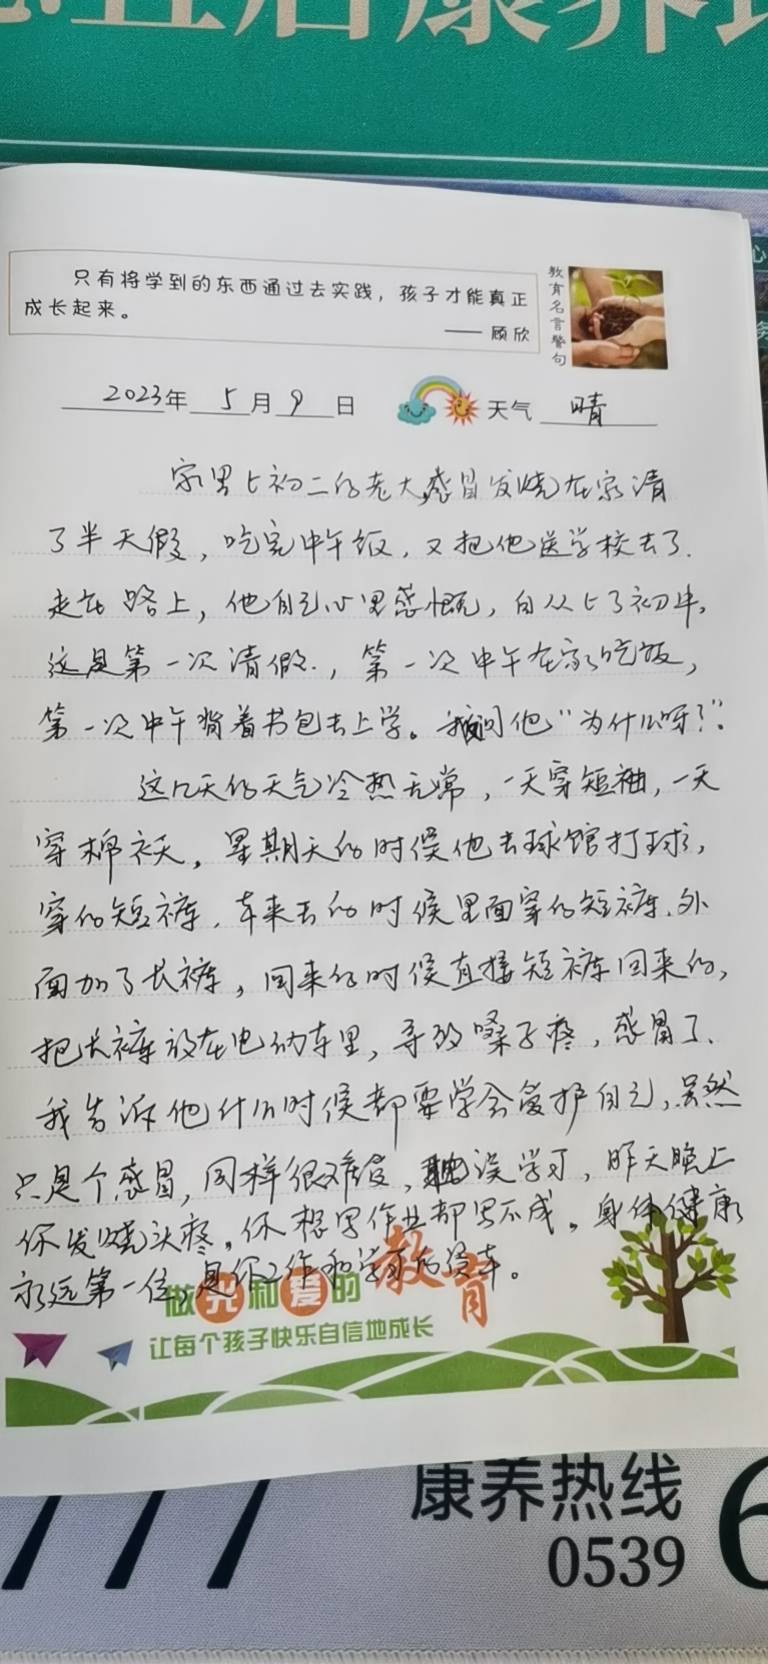 康养
只有将学到的东西通过去实践，孩子才能真正
成长起来。
—— 顾欣
教育名言警句
2023年 5月9日 天气 晴
家里上初二的老大,感冒发烧在家请
了半天假，吃完中午饭，又把他送学校去了.
走在路上，他自己心里感慨，自从上了初中,
这是第一次请假.，第一次中午在家吃饭，
第一次中午背着书包去上学。我问他“为什么呀？”.
这几天的天气冷热无常，一天穿短袖，一天
穿棉袄，星期天的时候他去球馆打球，
穿的短裤，本来去的时候里面穿的短裤.外
面加了长裤，回来的时候直接短裤回来的，
把长裤放在电动车里，导致嗓子疼，感冒了.
我告诉他什么时候都要学会爱护自己，虽然
只是个感冒，同样很难受，耽误学习，昨天晚上
你发烧头疼，你想写作业都写不成。身体健康
永远第一位，是你工作和学习的资本。
做光和爱的教育
让每个孩子快乐自信地成长
777
康养热线
0539 6